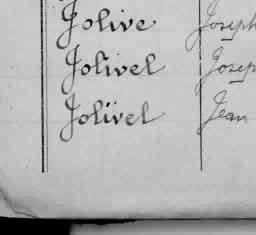 Jolive Joseph
Jolivel Joseph
Jolivel Jean